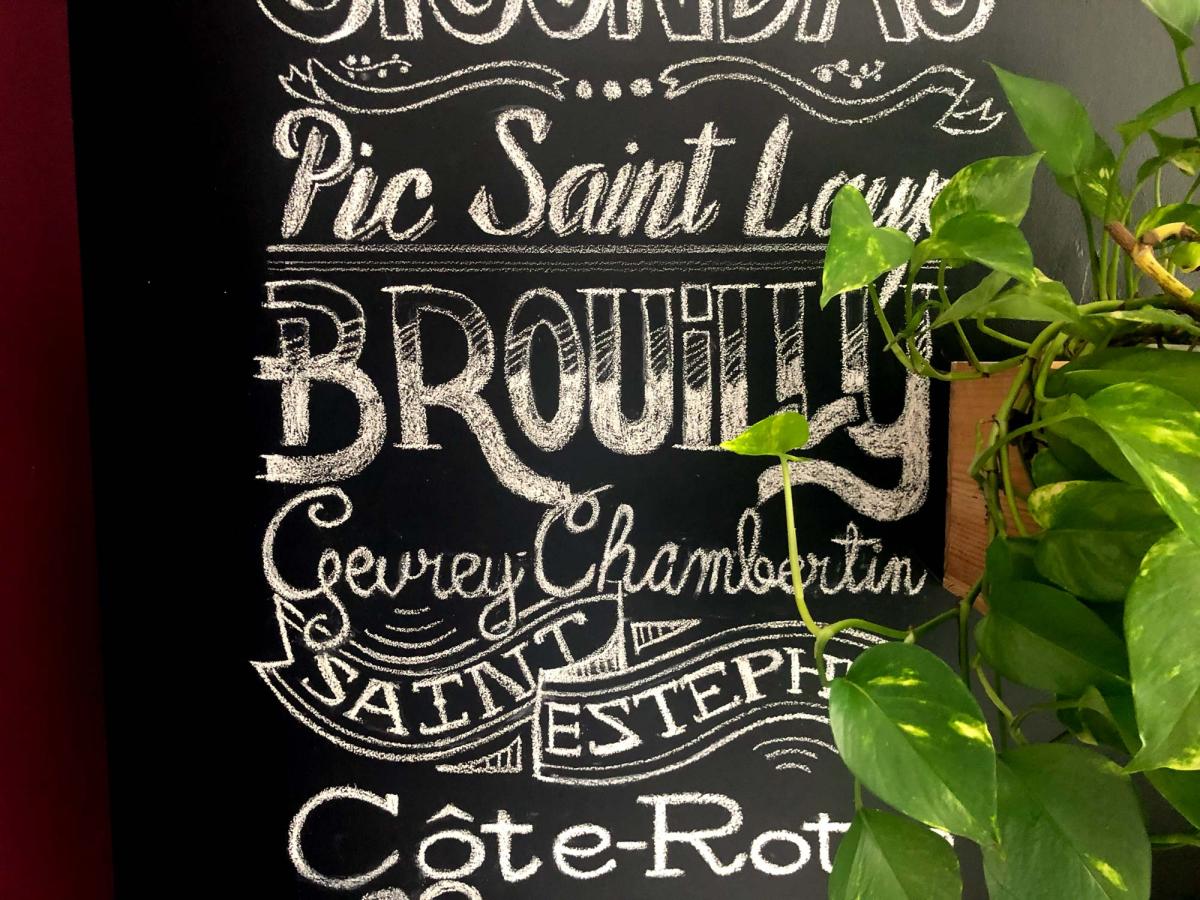 Pic Saint Loup
BROUILLY
Gevrey-Chambertin
SAINT
ESTEPHE
Côte-Rot